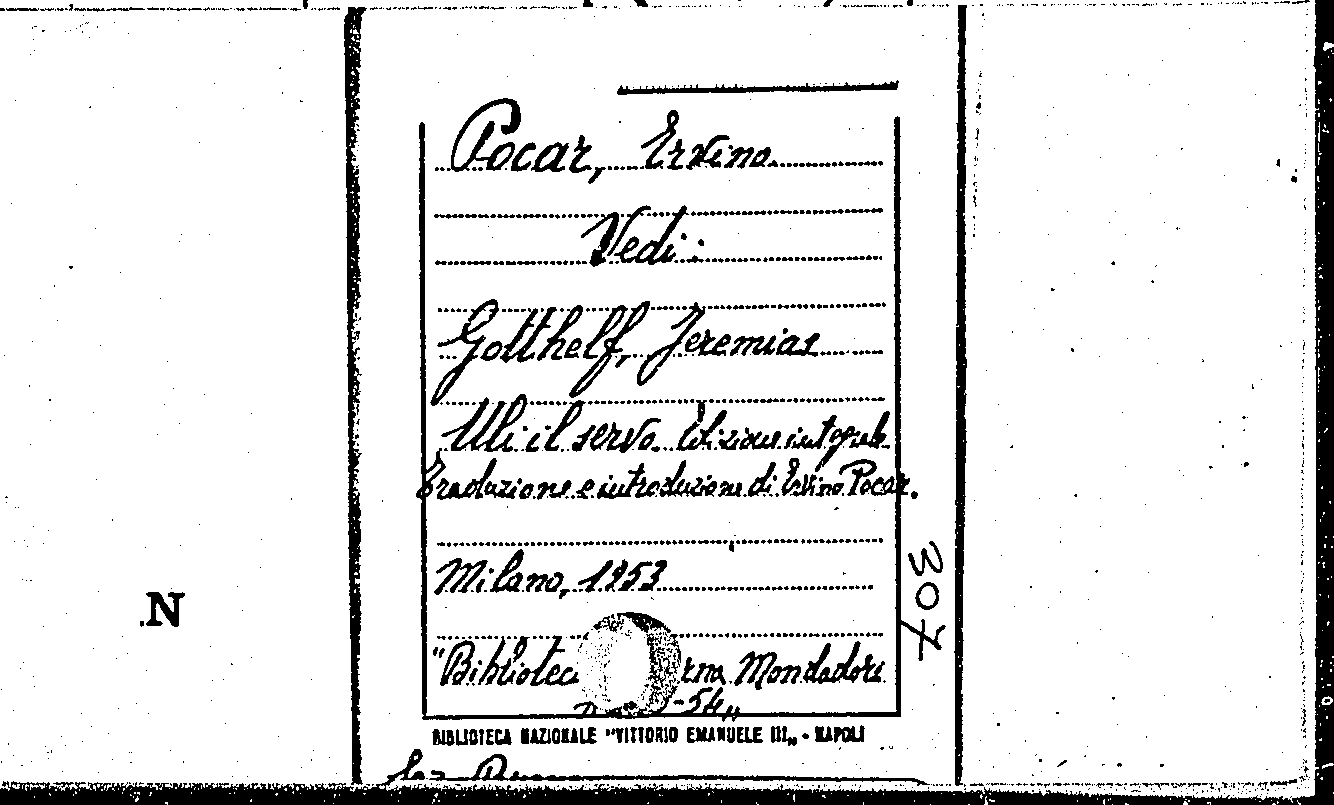 Pocar, Ervino
Vedi:
Gotthelf, Jeremias
Uli il servo. Edizione integrale
Traduzione e introduzione di Ervino Pocar.
Milano, 1953
"Bibliotec rna Mondadori
-54"
BIBLIOTECA NAZIONALE "VITTORIO EMANUELE III„ - NAPOLI
307
.N